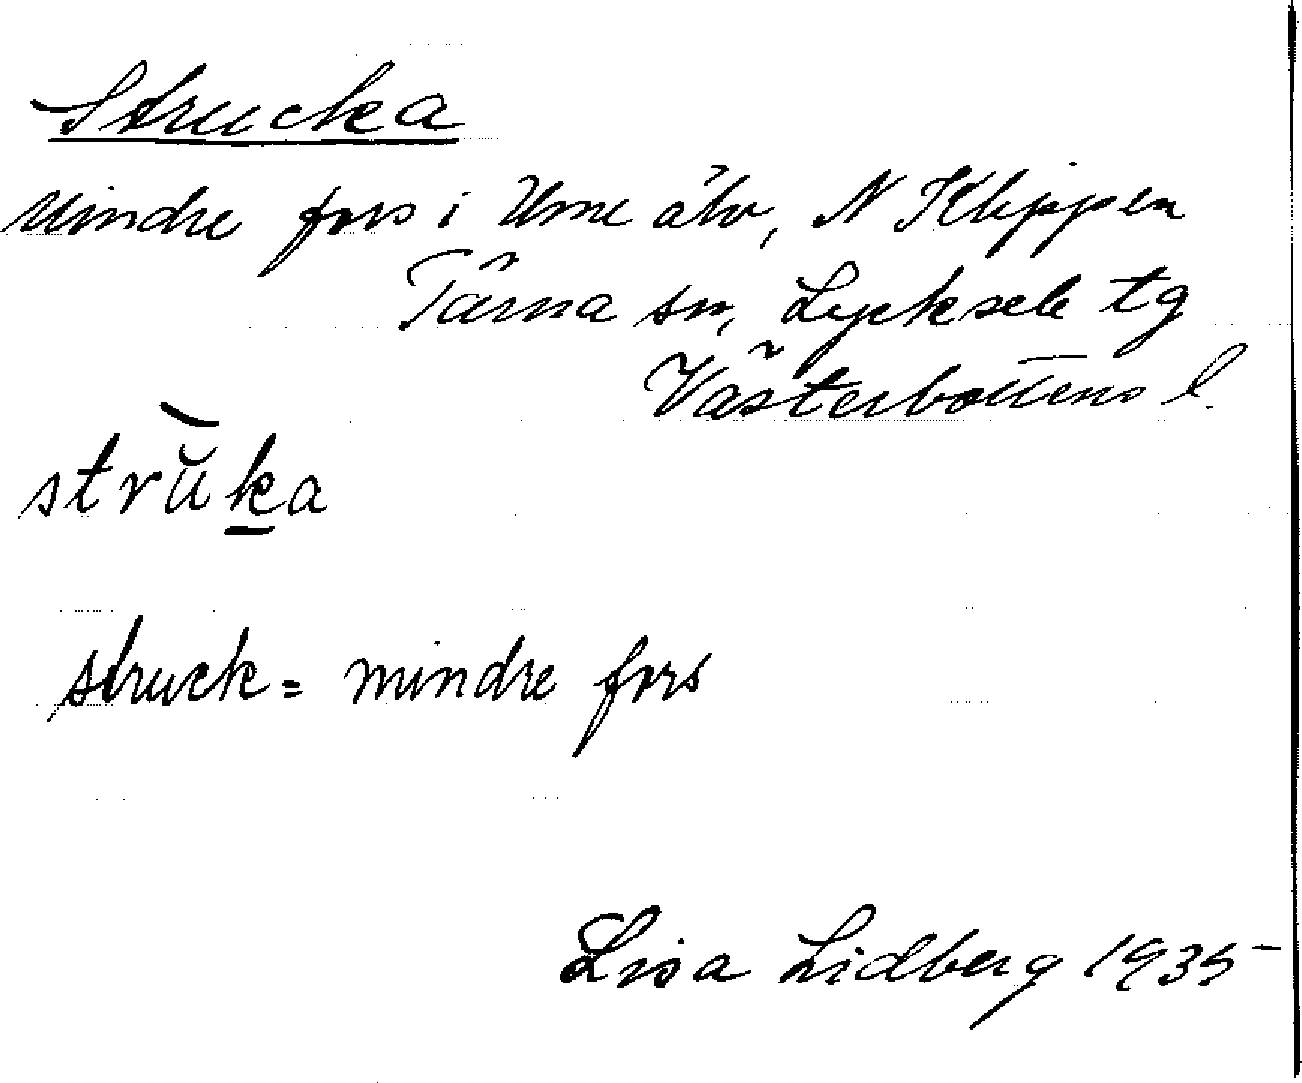 Strucka
Mindre fors i Ume älv, N Klippen
Tärna sn, Lycksele tg
Västerbottens l.
strŭ̀k̲a
struck = mindre fors
Lisa Lidberg 1935